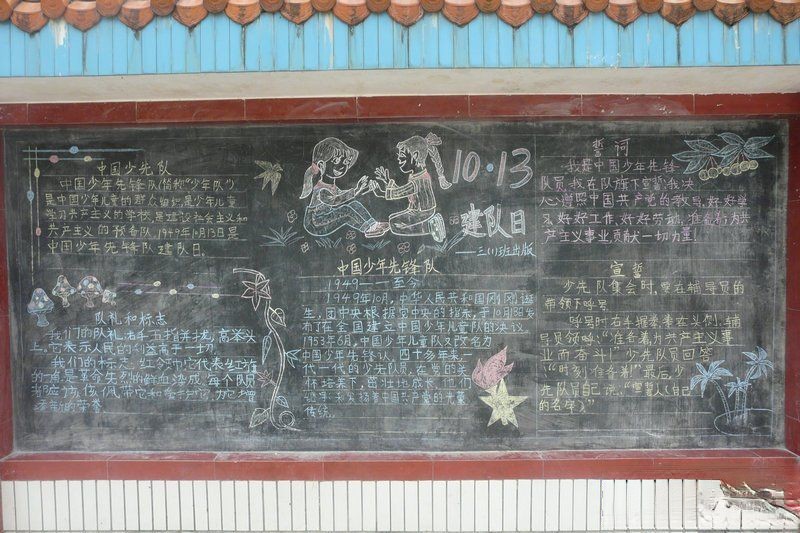 中国少先队
中国少年先锋队(简称“少年队”)
是中国少年儿童的群众组织,是少年儿童
学习共产主义的学校,是建设社会主义和
共产主义的预备队,1949年10月13日是
中国少年先锋队建队日。
队礼和标志
我们的队礼:右手五指并拢,高举头
上,它表示人民的利益高于一切。
我们的标志:红领巾它代表红旗
的一角,是革命先烈的鲜血染成,每个队员
都应该佩带它和爱护它,为它增
添新的荣誉
10·13
建队日
——三(1)班出版
中国少年先锋队
1949——至今
1949年10月,中华人民共和国刚刚诞
生,团中央根据党中央的指示,于10月13日发
布了在全国建立中国少年儿童队的决议
1953年6月,中国少年儿童队又改名为
中国少年先锋队,四十多年来,一
代一代的少先队员,在党的关
怀培养下,茁壮地成长,他们
扬着中国共产党的光荣
传统。
誓词
我是中国少年先锋
队员,我在队旗下宣誓:我决
心遵照中国共产党的教导,好好学
习,好好工作,好好劳动,准备着:为共
产主义事业贡献一切力量!
宣誓
少先队集会时,要在辅导员的
带领下呼号
呼号时右手握拳举在头侧,辅
导员领呼:“准备着为共产主义事
业而奋斗!”少先队员回答
“时刻准备着!”最后少
先队员自己说:“宣誓人(自己
的名字)”